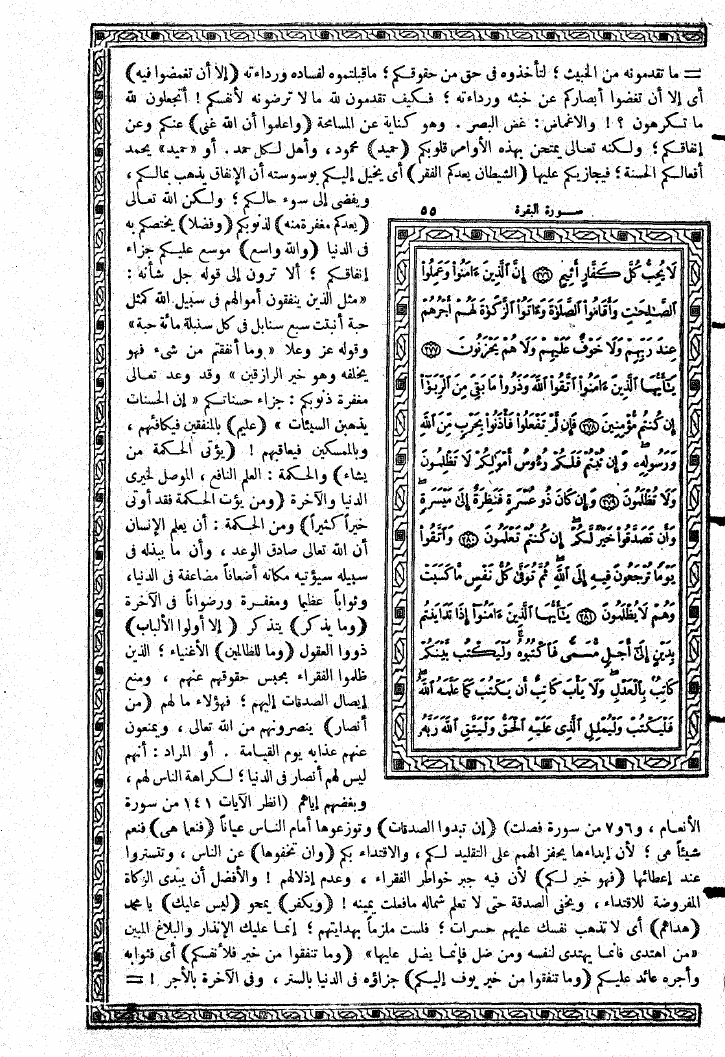 = ما تقدمونه من الخبيث ؛ لتأخذوه فى حق من حقوقكم ؛ ماقبلتموه لفساده ورداءته (إلا أن تغمضوا فيه)
أى إلا أن تغضوا أبصاركم عن خبثه ورداءته ؛ فكيف تقدمون لله مالا ترضونه لأنفسكم ! أتجعلون لله
ما تكرهون ؟ ! والاغماض : غض البصر . وهو كناية عن المسامحة (واعلموا أن الله غنى) عنكم وعن
إنفاقكم ؛ ولكنه تعالى يمتحن بهذه الأوامر قلوبكم (حميد) محمود ، وأهل لكل حمد . أو «حميد» يحمد
أفعالكم الحسنة ؛ فيجازيكم عليها (الشيطان يعدكم الفقر) أى يخيل إليكم بوسوسته أن الإنفاق يذهب بمالكم ،
ويفضى إلى سوء حالكم ؛ ولكن الله تعالى
(يعدكم مغفرة منه) لذنوبكم (وفضلا) يختصكم به
فى الدنيا (والله واسع) موسع عليكم جزاء
إنفاقكم ؛ ألا ترون إلى قوله جل شأنه :
«مثل الذين ينفقون أموالهم فى سبيل الله كمثل
حبة أنبتت سبع سنابل فى كل سنبلة مائة حبة»
وقوله عز وعلا «وما أنفقتم من شىء فهو
يخلفه وهو خير الرازقين» وقد وعد تعالى
مغفرة ذنوبكم : جزاء حسناتكم «إن الحسنات
يذهبن السيئات» (عليم) بالمنفقين فيكافئهم ،
وبالممسكين فيعاقبهم ! (يؤتى الحكمة من
يشاء) والحكمة : العلم النافع ، الموصل لخيرى
الدنيا والآخرة (ومن يؤت الحكمة فقد أوتى
خيراً كثيراً) ومن الحكمة : أن يعلم الإنسان
أن الله تعالى صادق الوعد ، وأن ما يبذله فى
سبيله سيؤتيه مكانه أضعافاً مضاعفة فى الدنيا ،
وثواباً عظيما ومغفرة ورضواناً فى الآخرة
(وما يذكر) يتذكر (إلا أولوا الألباب)
ذووا العقول (وما للظالمين) الأغنياء ؛ الذين
ظلموا الفقراء بحبس حقوقهم عنهم ، ومنع
إيصال الصدقات إليهم ؛ فهؤلاء ما لهم (من
أنصار) ينصرونهم من الله تعالى ، ويمنعون
عنهم عذابه يوم القيامة . أو المراد : أنهم
ليس لهم أنصار فى الدنيا ؛ لكراهة الناس لهم ،
وبغضهم إياهم (انظر الآيات ١٤١ من سورة
سورة البقرة ٥٥
لَا يُحِبُّ كُلَّ كَفَّارٍ أَثِيمٍ ﴿٢٧٦﴾ إِنَّ الَّذِينَ ءَامَنُوا وَعَمِلُوا
الصَّـٰلِحَـٰتِ وَأَقَامُوا الصَّلَوٰةَ وَءَاتَوُا الزَّكَوٰةَ لَهُمْ أَجْرُهُمْ
عِندَ رَبِّهِمْ وَلَا خَوْفٌ عَلَيْهِمْ وَلَا هُمْ يَحْزَنُونَ ﴿٢٧٧﴾
يَـٰٓأَيُّهَا الَّذِينَ ءَامَنُوا اتَّقُوا اللَّهَ وَذَرُوا مَا بَقِىَ مِنَ الرِّبَوٰٓا
إِن كُنتُم مُّؤْمِنِينَ ﴿٢٧٨﴾ فَإِن لَّمْ تَفْعَلُوا فَأْذَنُوا بِحَرْبٍ مِّنَ اللَّهِ
وَرَسُولِهِۦ وَإِن تُبْتُمْ فَلَكُمْ رُءُوسُ أَمْوَٰلِكُمْ لَا تَظْلِمُونَ
وَلَا تُظْلَمُونَ ﴿٢٧٩﴾ وَإِن كَانَ ذُو عُسْرَةٍ فَنَظِرَةٌ إِلَىٰ مَيْسَرَةٍ
وَأَن تَصَدَّقُوا خَيْرٌ لَّكُمْ إِن كُنتُمْ تَعْلَمُونَ ﴿٢٨٠﴾ وَاتَّقُوا
يَوْمًا تُرْجَعُونَ فِيهِ إِلَى اللَّهِ ثُمَّ تُوَفَّىٰ كُلُّ نَفْسٍ مَّا كَسَبَتْ
وَهُمْ لَا يُظْلَمُونَ ﴿٢٨١﴾ يَـٰٓأَيُّهَا الَّذِينَ ءَامَنُوٓا إِذَا تَدَايَنتُم
بِدَيْنٍ إِلَىٰٓ أَجَلٍ مُّسَمًّى فَاكْتُبُوهُ وَلْيَكْتُب بَّيْنَكُمْ
كَاتِبٌ بِالْعَدْلِ وَلَا يَأْبَ كَاتِبٌ أَن يَكْتُبَ كَمَا عَلَّمَهُ اللَّهُ
فَلْيَكْتُبْ وَلْيُمْلِلِ الَّذِى عَلَيْهِ الْحَقُّ وَلْيَتَّقِ اللَّهَ رَبَّهُۥ
الأنعام ، و٦و٧ من سورة فصلت) (إن تبدوا الصدقات) وتوزعوها أمام الناس عياناً (فنعما هى) فنعم
شيئاً هى ؛ لأن إبداءها يحفز الهمم على التقليد لكم ، والاقتداء بكم (وان تخفوها) عن الناس ، وتتستروا
عند إعطائها (فهو خير لكم) لأن فيه جبر خواطر الفقراء ، وعدم إذلالهم ! والأفضل أن يبدى الزكاة
المفروضة للاقتداء ، ويخفى الصدقة حتى لا تعلم شماله مافعلت يمينه ! (ويكفر) يمحو (ليس عليك) يا محمد
(هداهم) أى لا تذهب نفسك عليهم حسرات ؛ فلست ملزماً بهدايتهم ؛ إنما عليك الإنذار والبلاغ المبين
«من اهتدى فانما يهتدى لنفسه ومن ضل فإنما يضل عليها» (وما تنفقوا من خير فلأنفسكم) أى فثوابه
وأجره عائد عليكم (وما تنفقوا من خير يوف إليكم) جزاؤه فى الدنيا بالستر ، وفى الآخرة بالأجر ! =